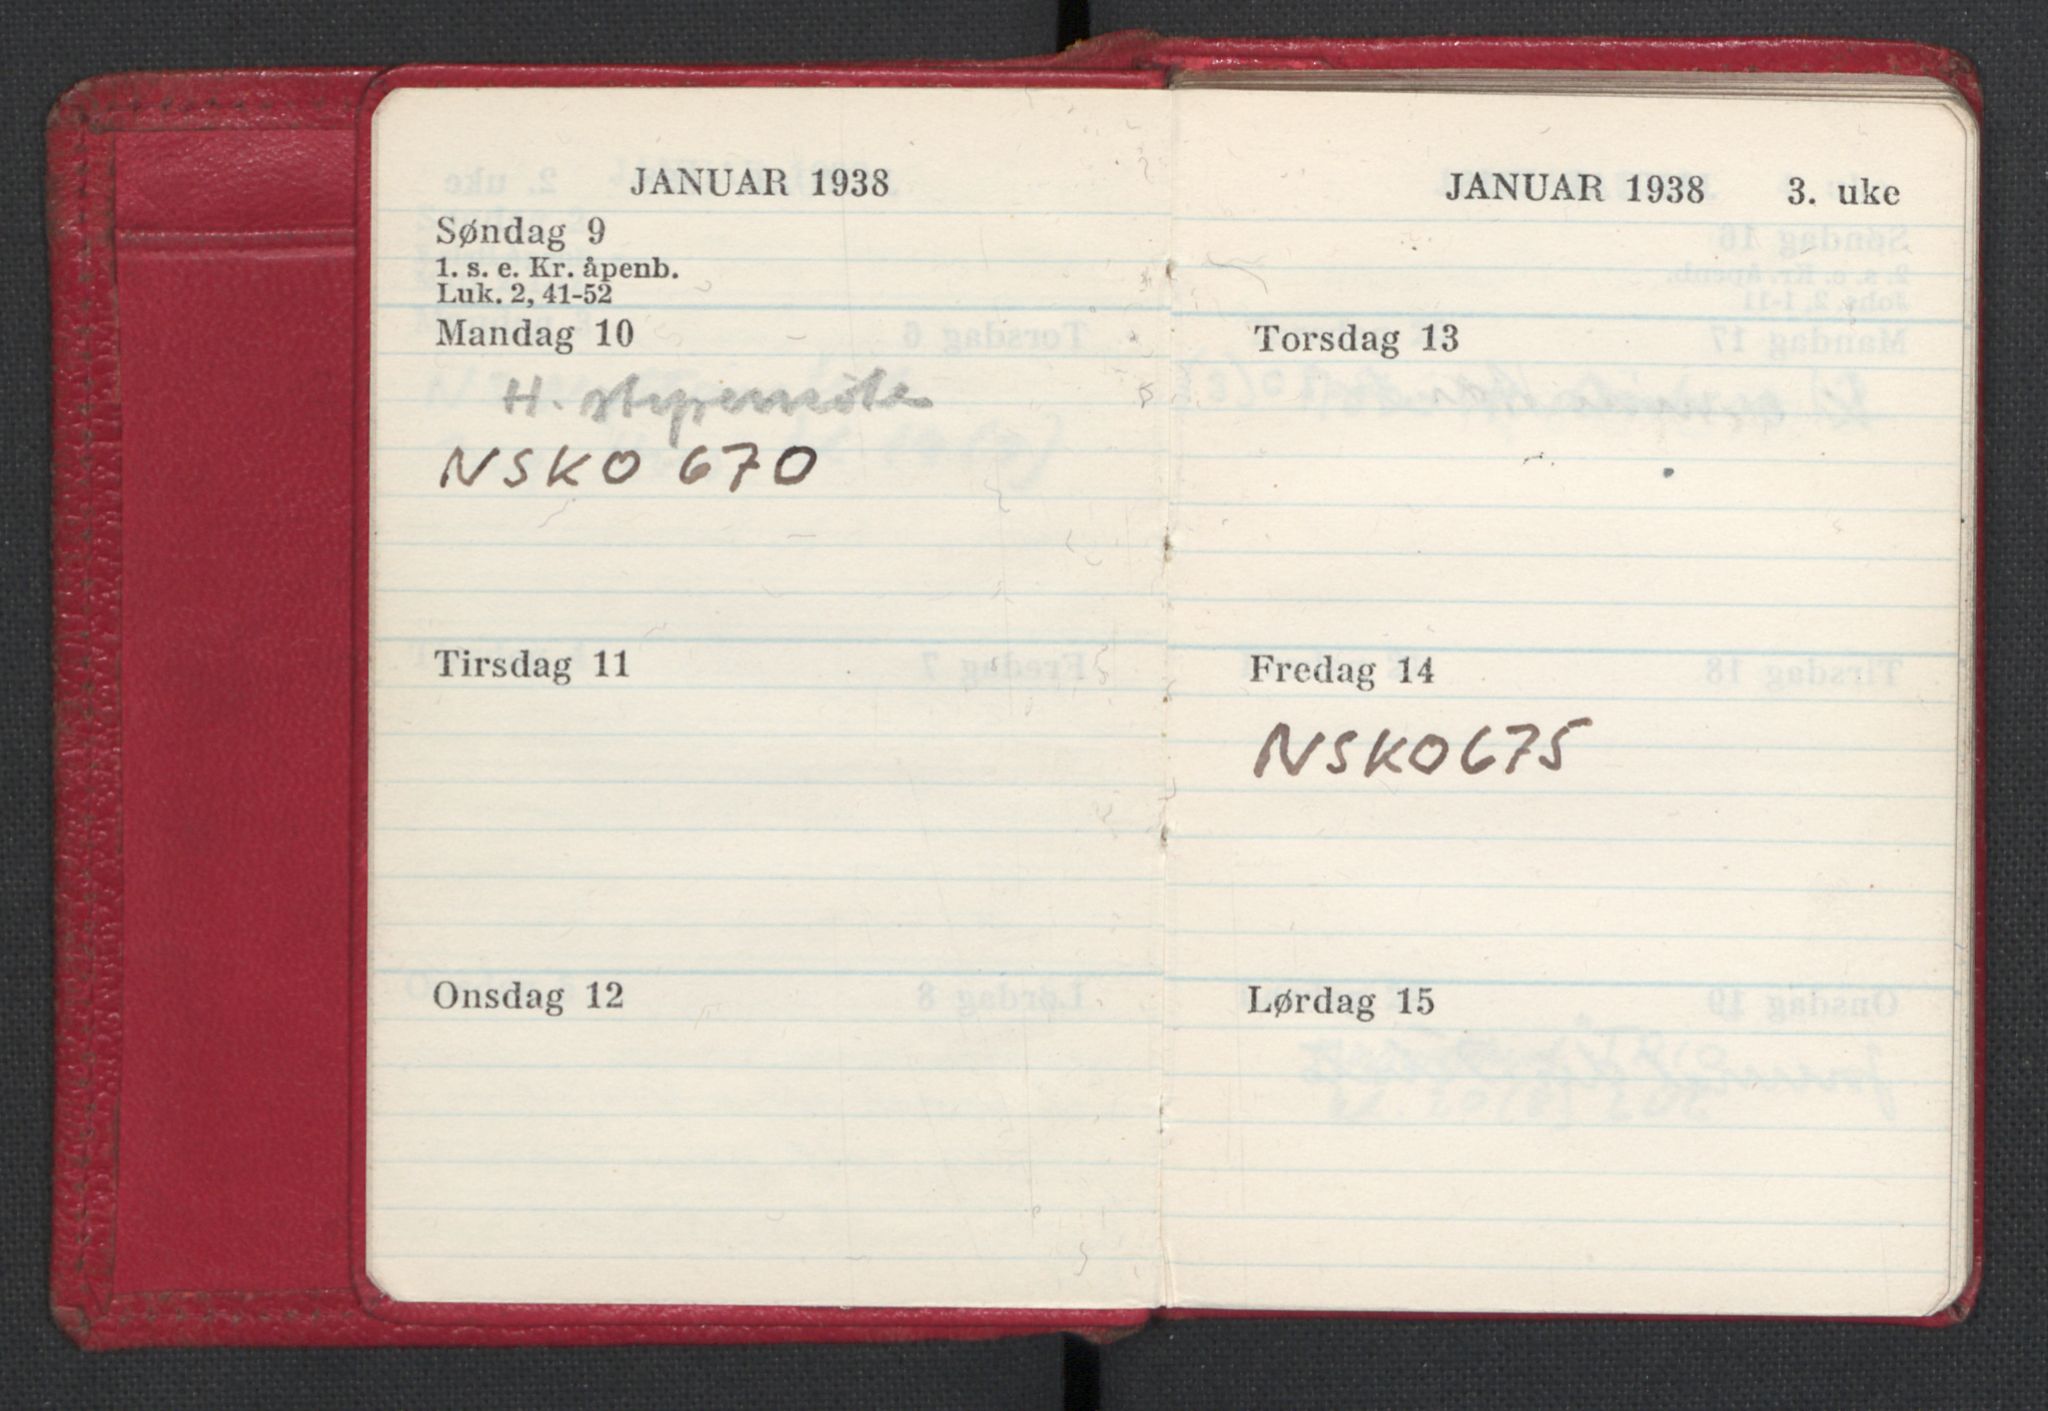 JANUAR 1938
Søndag 9
1. s. e. Kr. åpenb.
Luk. 2, 41-52
Mandag 10
H. styremöte
NSKO 670
Tirsdag 11
Onsdag 12
JANUAR 1938 3. uke
Torsdag 13
Fredag 14
NSKO 675
Lørdag 15